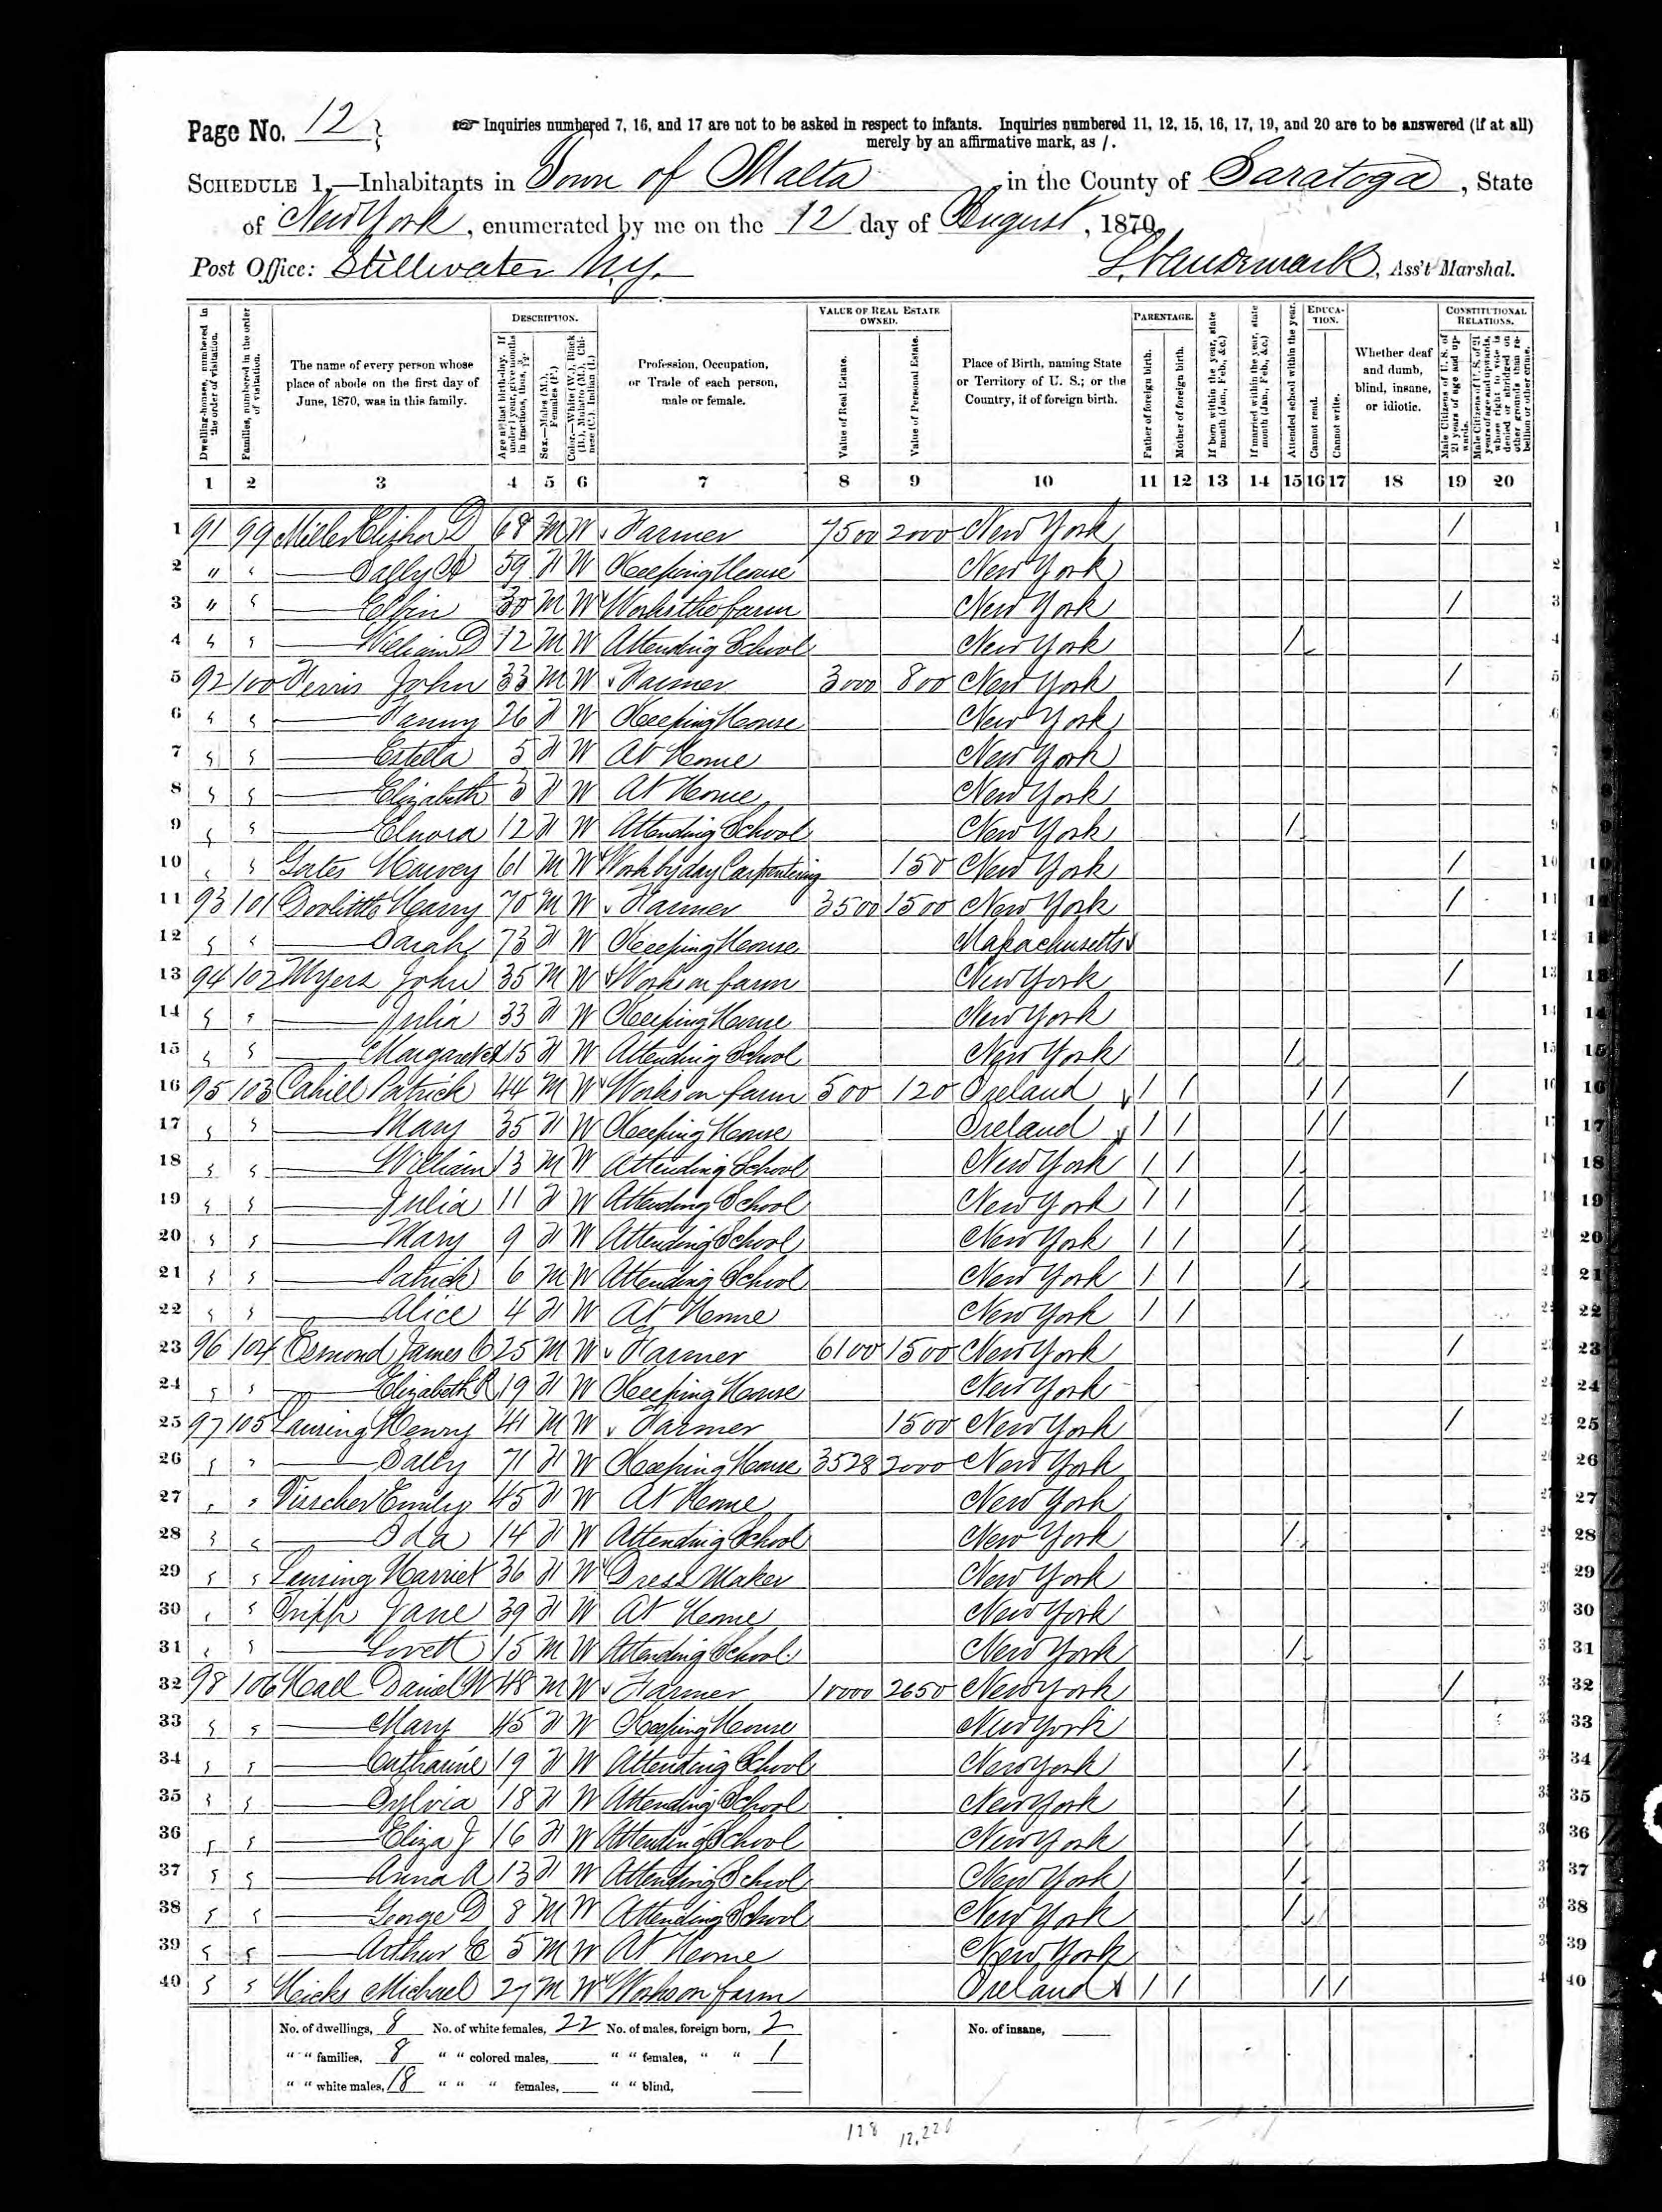 Page No. 12
☞ Inquiries numbered 7, 16, and 17 are not to be asked in respect to infants. Inquiries numbered 11, 12, 15, 16, 17, 19, and 20 are to be answered (if at all)
merely by an affirmative mark, as /.
SCHEDULE 1.—Inhabitants in Town of Malta, in the County of Saratoga, State
of New York, enumerated by me on the 12 day of August, 1870.
Post Office: Stillwater N.Y. Ass't Marshal.
DESCRIPTION. VALUE OF REAL ESTATE OWNED. PARENTAGE. EDUCATION. CONSTITUTIONAL RELATIONS.
Dwelling-houses, numbered in the order of visitation.
Families, numbered in the order of visitation.
The name of every person whose place of abode on the first day of June, 1870, was in this family.
Age at last birth-day. If under 1 year, give months in fractions, thus, 3/12.
Sex.—Males (M.), Females (F.)
Color.—White (W.), Black (B.), Mulatto (M.), Chinese (C.), Indian (I.)
Profession, Occupation, or Trade of each person, male or female.
Value of Real Estate.
Value of Personal Estate.
Place of Birth, naming State or Territory of U. S.; or the Country, if of foreign birth.
Father of foreign birth.
Mother of foreign birth.
If born within the year, state month (Jan., Feb., &c.)
If married within the year, state month (Jan., Feb., &c.)
Attended school within the year.
Cannot read.
Cannot write.
Whether deaf and dumb, blind, insane, or idiotic.
Male Citizens of U. S. of 21 years of age and upwards.
Male Citizens of U. S. of 21 years of age and upwards, whose right to vote is denied or abridged on other grounds than rebellion or other crime.
1 2 3 4 5 6 7 8 9 10 11 12 13 14 15 16 17 18 19 20
1 91 99 Miller Elisha D 68 M W Farmer 7500 2000 New York / 1
2 " " —— Sally A 59 F W Keeping House New York 2
3 " " —— 30 M W Works the farm New York / 3
4 " " —— William D 12 M W Attending School New York / 4
5 92 100 Ferris John 33 M W Farmer 3000 800 New York / 5
6 " " —— Fanny 26 F W Keeping House New York 6
7 " " —— Estella 5 F W At Home New York 7
8 " " —— Elizabeth 3 F W At Home New York 8
9 " " —— Elnora 12 F W Attending School New York / 9
10 " " Gates Harvey 61 M W Work by day Carpentering 150 New York / 10
11 93 101 Doolittle Harry 70 M W Farmer 3500 1500 New York / 11
12 " " —— Sarah 73 F W Keeping House Massachusetts 12
13 94 102 Myers John 35 M W Works on farm New York / 13
14 " " —— Julia 33 F W Keeping House New York 14
15 " " —— Margaret A 15 F W Attending School New York / 15
16 95 103 Cahill Patrick 44 M W Works on farm 500 120 Ireland / / / / / 16
17 " " —— Mary 35 F W Keeping House Ireland / / / / 17
18 " " —— William 13 M W Attending School New York / / / 18
19 " " —— Julia 11 F W Attending School New York / / / 19
20 " " —— Mary 9 F W Attending School New York / / / 20
21 " " —— Patrick 6 M W Attending School New York / / / 21
22 " " —— Alice 4 F W At Home New York / / 22
23 96 104 Esmond James C 25 M W Farmer 6100 1500 New York / 23
24 " " —— Elizabeth R 19 F W Keeping House New York 24
25 97 105 Lansing Henry 41 M W Farmer 1500 New York / 25
26 " " —— Sally 71 F W Keeping House 3528 2000 New York 26
27 " " Visscher Emily 45 F W At Home New York 27
28 " " —— Ida 14 F W Attending School New York / 28
29 " " Lansing Harriet 36 F W Dress Maker New York 29
30 " " Tripp Jane 39 F W At Home New York 30
31 " " —— Lovett 15 M W Attending School New York / 31
32 98 106 Hall Daniel W 48 M W Farmer 10000 2650 New York / 32
33 " " —— Mary 45 F W Keeping House New York 33
34 " " —— Catharine 19 F W Attending School New York / 34
35 " " —— Sylvia 18 F W Attending School New York / 35
36 " " —— Eliza J 16 F W Attending School New York / 36
37 " " —— Anna A 13 F W Attending School New York / 37
38 " " —— George D 8 M W Attending School New York / 38
39 " " —— Arthur E 5 M W At Home New York 39
40 " " Hicks Michael 27 M W Works on farm Ireland / / / / 40
No. of dwellings, 8 No. of white females, 22 No. of males, foreign born, 2 No. of insane,
" " families, 8 " " colored males, " " females, " " 1
" " white males, 18 " " " females, " " blind,
128 12,220